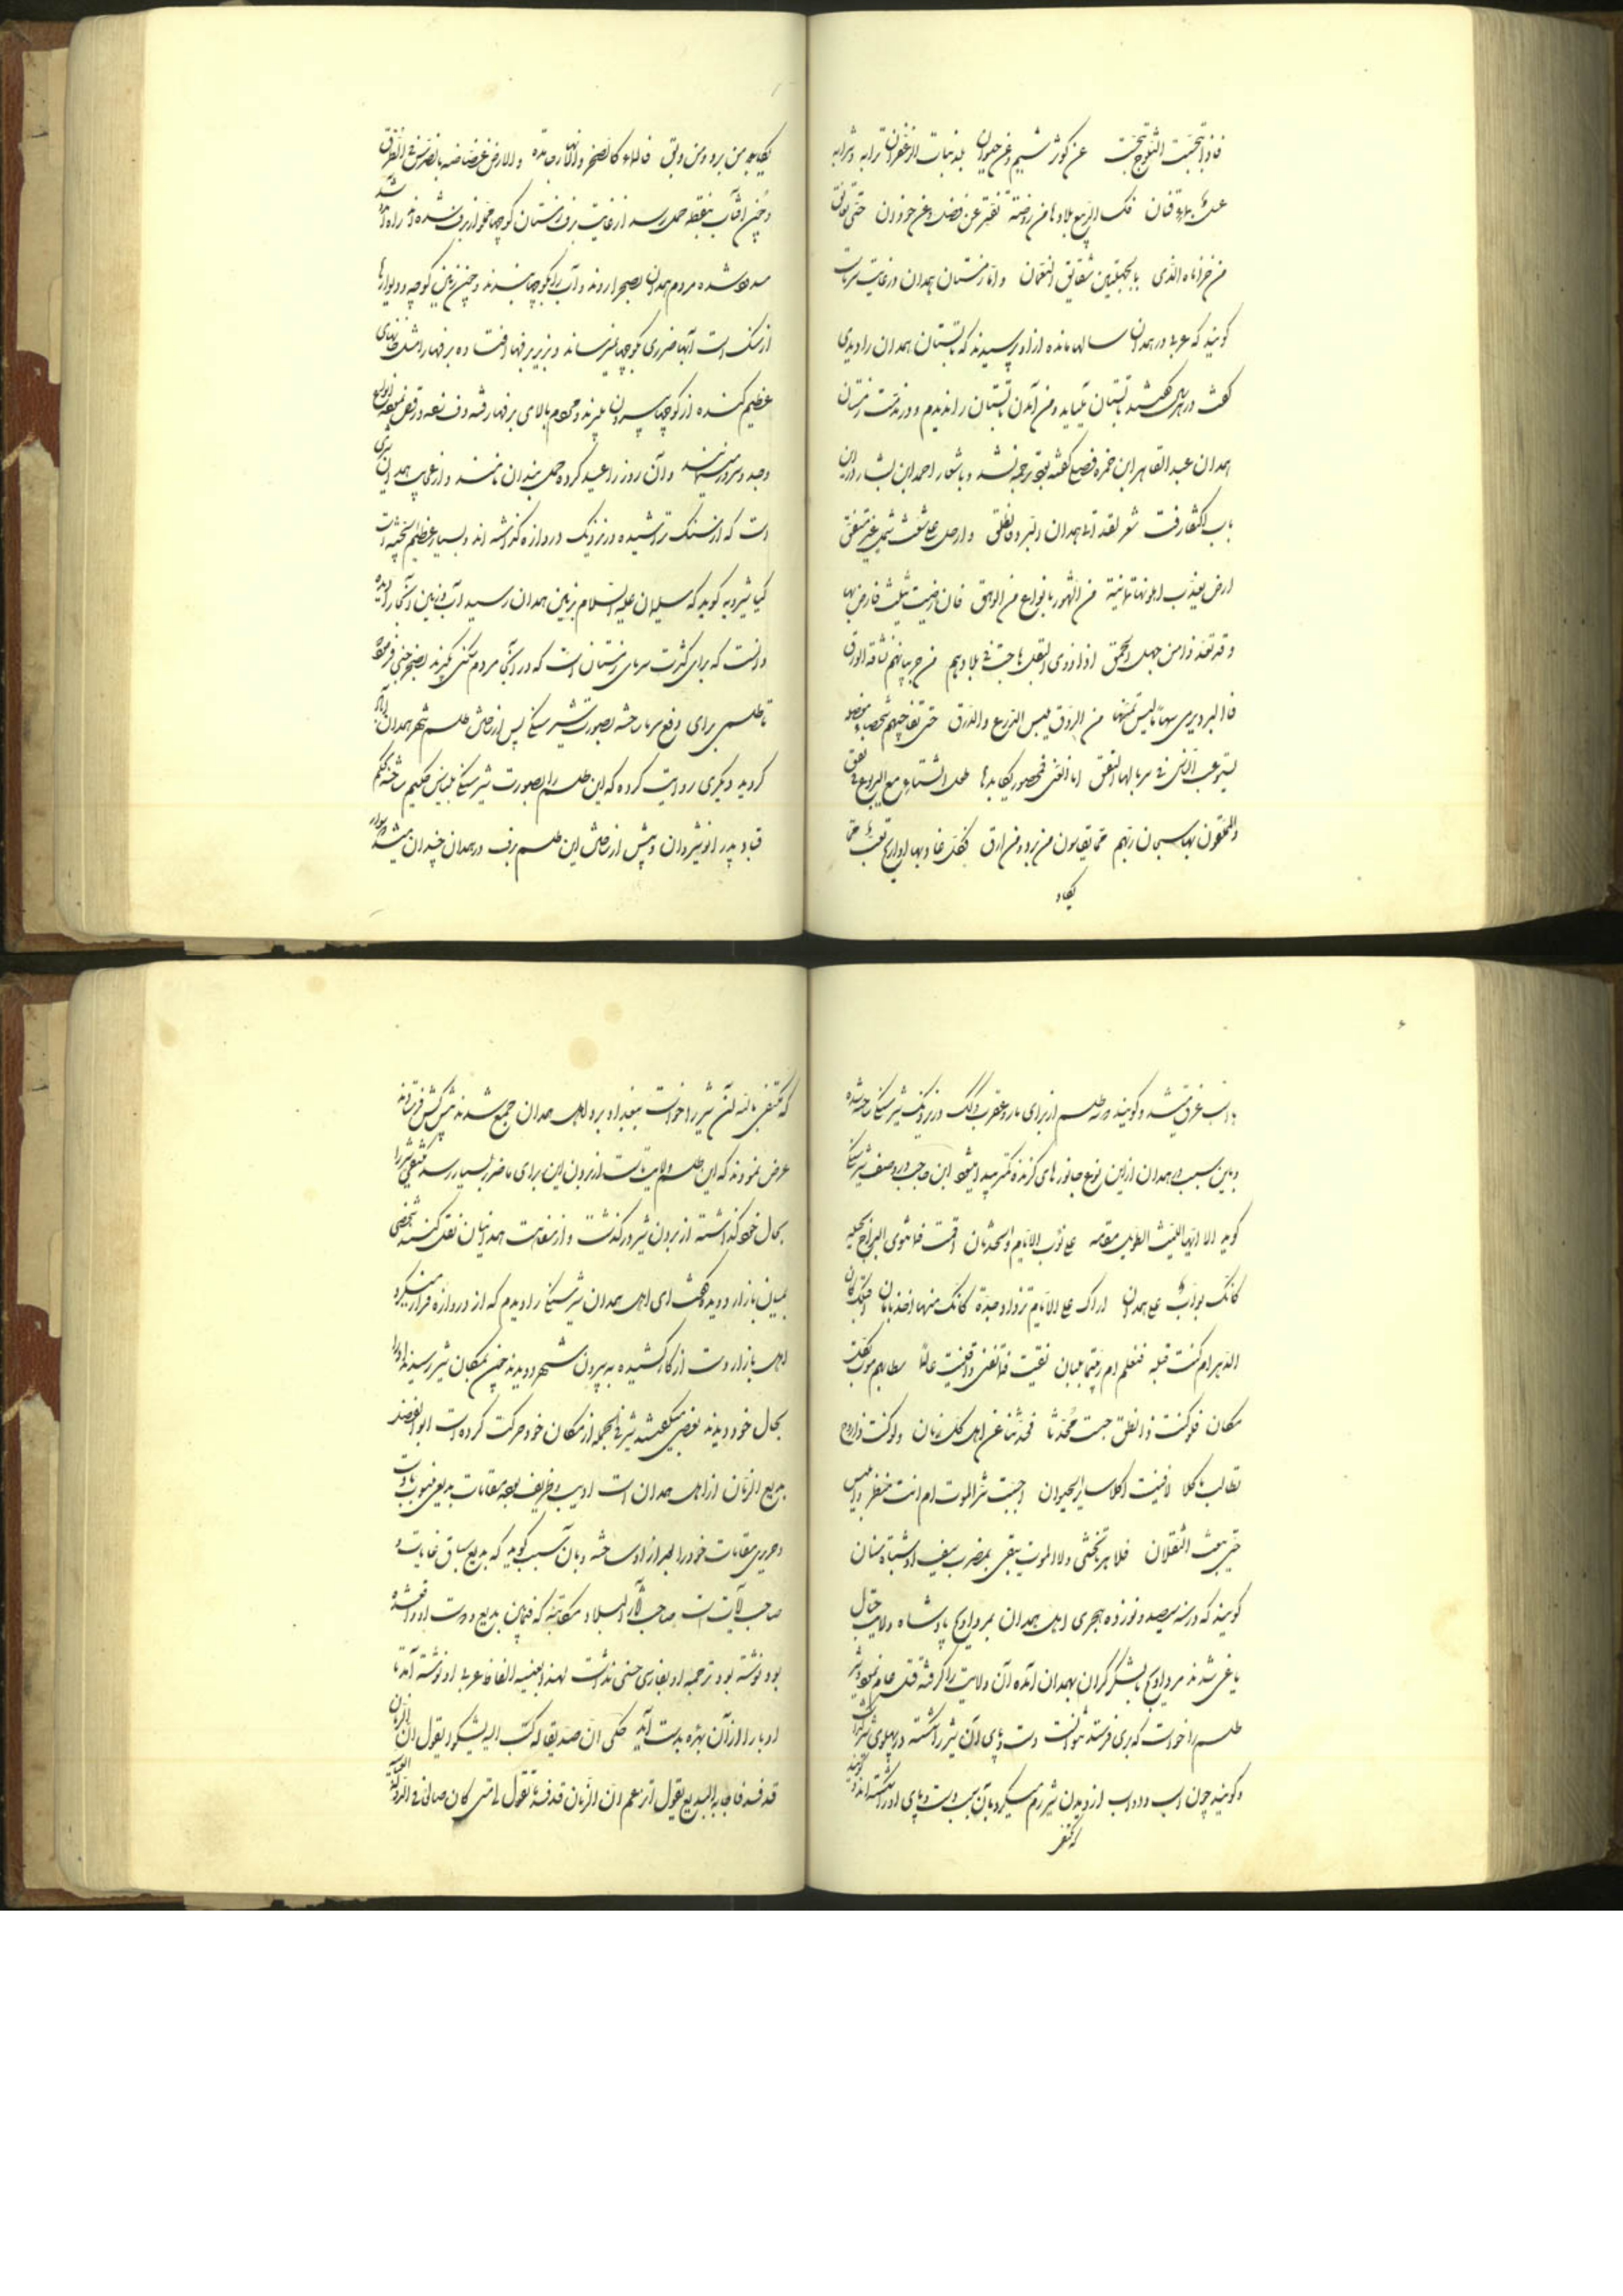 فاذا تبجست الثلوج تبجست عن کوثر شبم و عن حیوان بلد نبات الزعفران ترابه و شرابه
عسل بماء قنان فکسا الربیع بلادها من روضة تفتر عن نفل و عن حوذان حتی تعانق
من خزاماه الذی بالجهلتین شقایق النعمان و اما زمستان همدان در غایت سرماست
گویند که عربی در همدان سالها مانده از او پرسیدند که تابستان همدان را دیدی
گفت در هر سال گفتند تابستان بیاید و من آمدن تابستان را ندیدم و در مذمت زمستان
همدان عبد القاهر ابن حمزه فصیح گفته بود ترجمه نشد و باشعار احمد ابن بشار در این
باب اکتفا رفت شعر لقد اتی همدان البرد فانطلق و ارحل علی شعث شمل غیر متفق
ارض یعذب اهلوها ثمانیة من الشهور بانواع من الوهق فان رضیت بثلث فارض بها
و قد تعد اذا من جهل الحمق اذا ذوی البقل هاجت فی بلادهم من جربیائهم نشافة الورق
فالبرد یرمی سهاما لیس تمنعها من المروق لبس الدرع والدرق حتی تفاجئهم شهباء
یستوعب الناس فی سربالها الیقق اما الغنی فمحصور یکابدها طول الشتاء مع الیربوع فی نفق
والمملقون بها سبحان ربهم مما یقاسون من برد و من ارق فکل غاد بها او رایح تعب مما
یکابد
یکابد من برد و من دلق فالماء کالصخر والانهار جامدة والارض عضاضة بالضرس فی الطرق
و چون آفتاب بنقطه حمل رسد از غایت برف زمستان کوچها مملو از برف شده و راه آمد شد
مسدود شده مردم همدان بصحرا روند و آب را بکوچها بندند و چون زمین کوچه و دیوارها
از سنگ است آبها ضرری بکوچها نمیرساند و بزیر برفها افتاده برفها را مثل خانهای
عظیم کنده از کوچها بیرون میبرند و مردم بالای برفها رفته دف زنند و رقص نموده انواع
وجد و سرور میکنند و آن روز را عید کرده حمل بندان نامند و از عجایب همدان شیری
است که از سنگ تراشیده در نزدیک دروازه گذاشته اند و بسیار عظیم الجثه است
کیا شیرویه گوید که سلیمان علیه السلام بزمین همدان رسید آب و زمین و اشجار را دیده
دانست که برای کثرت سرمای زمستان است که در آنجا مردم سکنی نگیرند بصخر جنی فرموده
تا طلسمی برای دفع سرما ساخته بصورت شیر سنگی پس از ساختن طلسم شهر همدان آباد
گردید و دیگری روایت کرده که این طلسم را بصورت شیر سنگی بلیناس حکیم ساخته بحکم
قباد پدر انوشیروان و پیش از ساختن این طلسم برف در همدان چندان میشد که سوار
با اسب غرق میشد و گویند دو سه طلسم از برای مار و عقرب و کک در نزدیک شیر سنگی ساخته شده
و باین سبب در همدان ازین نوع جانورهای گزنده کمتر پیدا میشود ابن حاجب در وصف شیر سنگی
گوید الا ایها اللیث الطویل مقامه علی نوب الایام والحدثان اقمت فما تنوی البراح بحیلة
کانک بواب علی همدان اراک علی الایام تزداد جدة کانک منها اخذ بامان اقبلک کان
الدهر ام کنت قبله فنعلم ام ربیتما بلبان بقیت فما تفنی و افنیت عالما سطا بهم موت بکل
مکان فلو کنت ذا نطق جلست محدثا فحدثتنا عن اهل کل زمان ولو کنت ذا روح
تطالب ماکلا لافنیت اکلا سایر الحیوان اجنبت شر الموت ام انت منظر و ابلیس
حتی یبعث الثقلان فلا هرما تخشی ولا الموت تتقی بمضرب سیف او شباة سنان
گویند که در سنه سیصد و نوزده هجری اهل همدان بمرداویج پادشاه ولایت جبال
یاغی شدند مرداویج با لشکر گران بهمدان آمده آن ولایت را گرفته قتل عام نمود و شیر
طلسم را خواست که بری فرستد نتوانست دست و پای آن شیر را شکسته در پهلوی
و گویند چون اسب و دواب از دیدن شیر رم میکردند بآن سبب دست و پای او را شکسته اند و گویند
که مکتفی
که مکتفی بالله آن شیر را خواست ببغداد برد اهل همدان جمع شدند پیش کش فرستاده
عرض نمودند که این طلسم ولایت ماست از بردن این برای ما ضرر بسیار رسد مکتفی شیر را
بحال خود گذاشته از بردن شیر در گذشت و از سفاهت همدانیان نقل کنند شخصی
بمیان بازار دویده گفت ای اهل همدان شیر سنگی را دیدم که از دروازه فرار میکرد
اهل بازار دست از کار کشیده به بیرون شهر دویدند چون بمکان شیر رسیدند او را
بحال خود دیدند بعضی میگفتند شیر فی الجمله از مکان خود حرکت کرده است ابو الفضل
بدیع الزمان از اهل همدان است ادیب و ظریف بوده مقامات بدیعی منسوب باوست
و حریری مقامات خود را بعد از او ساخته و بان سبب گوید که بدیع سباق غایات و
صاحب آیات است صاحب آثار البلاد مکاتبه که فیمابین بدیع و دوست او واقع شده
بود نوشته بود ترجمه او بفارسی حسنی نداشت لهذا بعینه الفاظ عربی او نوشته آمد تا
ادبا را از آن بهره بدست آید حکی ان صدیقا له کتب الیه یشکو و یقول ان الزمان
قد فسد فاجابه البدیع یقول اتزعم ان الزمان قد فسد تقول لی متی کان صالحا فی الدولة العباسیة